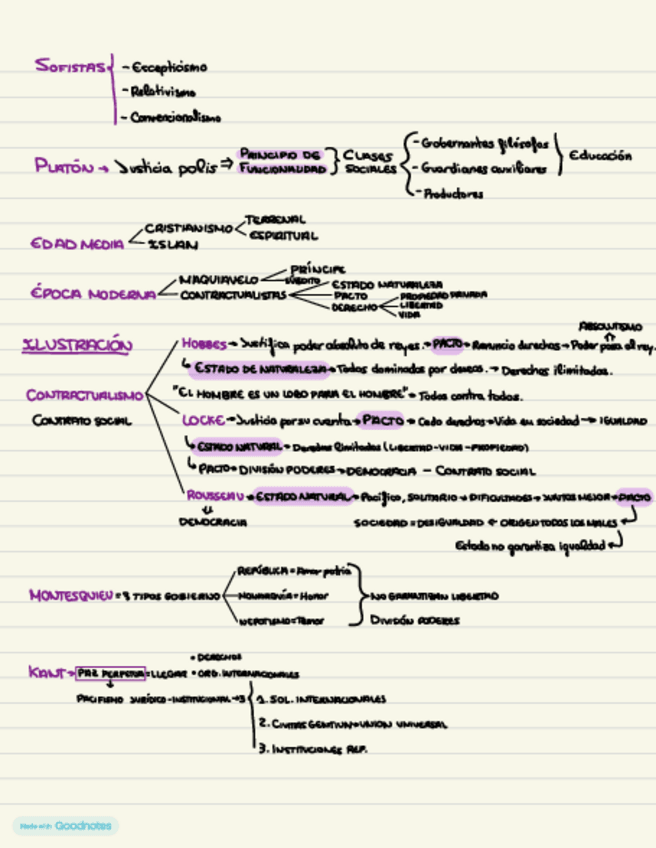 SOFISTAS
- Escepticismo
- Relativismo
- Convencionalismo
PLATÓN → Justicia polis ⇒ PRINCIPIO DE FUNCIONALIDAD } CLASES SOCIALES
- Gobernantes filósofos
- Guardianes auxiliares
- Productores
Educación
EDAD MEDIA
CRISTIANISMO
TERRENAL
ESPIRITUAL
ISLAM
ÉPOCA MODERNA
MAQUIAVELO
PRÍNCIPE
SÚBDITO
CONTRACTUALISTAS
ESTADO NATURALEZA
PACTO
DERECHO
PROPIEDAD PRIVADA
LIBERTAD
VIDA
ILUSTRACIÓN
CONTRACTUALISMO
CONTRATO SOCIAL
ABSOLUTISMO
HOBBES → Justifica poder absoluto de reyes. → PACTO → Renuncio derechos → Poder para el rey.
↳ ESTADO DE NATURALEZA → Todos dominados por deseos. → Derechos ilimitados.
"EL HOMBRE ES UN LOBO PARA EL HOMBRE" → Todos contra todos.
LOCKE → Justicia por su cuenta → PACTO → Cedo derechos → Vida en sociedad → IGUALDAD
↳ ESTADO NATURAL → Derechos limitados (LIBERTAD - VIDA - PROPIEDAD)
↳ PACTO → DIVISIÓN PODERES → DEMOCRACIA - CONTRATO SOCIAL
ROUSSEAU → ESTADO NATURAL → Pacífico, SOLITARIO → DIFICULTADES → JUNTOS MEJOR → PACTO
DEMOCRACIA
SOCIEDAD = DESIGUALDAD ← ORIGEN TODOS LOS MALES
Estado no garantiza igualdad
MONTESQUIEU = 3 TIPOS GOBIERNO
REPÚBLICA = Amor patria
MONARQUÍA = Honor
= Temor
NO GARANTIZAN LIBERTAD
DIVISIÓN PODERES
KANT → PAZ PERPETUA = LLEGAR
• DERECHOS
• ORG. INTERNACIONALES
PACIFISMO JURÍDICO-INSTITUCIONAL → 3
1. SOL. INTERNACIONALES
2. CIVITAS GENTIUM → UNION UNIVERSAL
3. INSTITUCIONES REP.
Made with Goodnotes